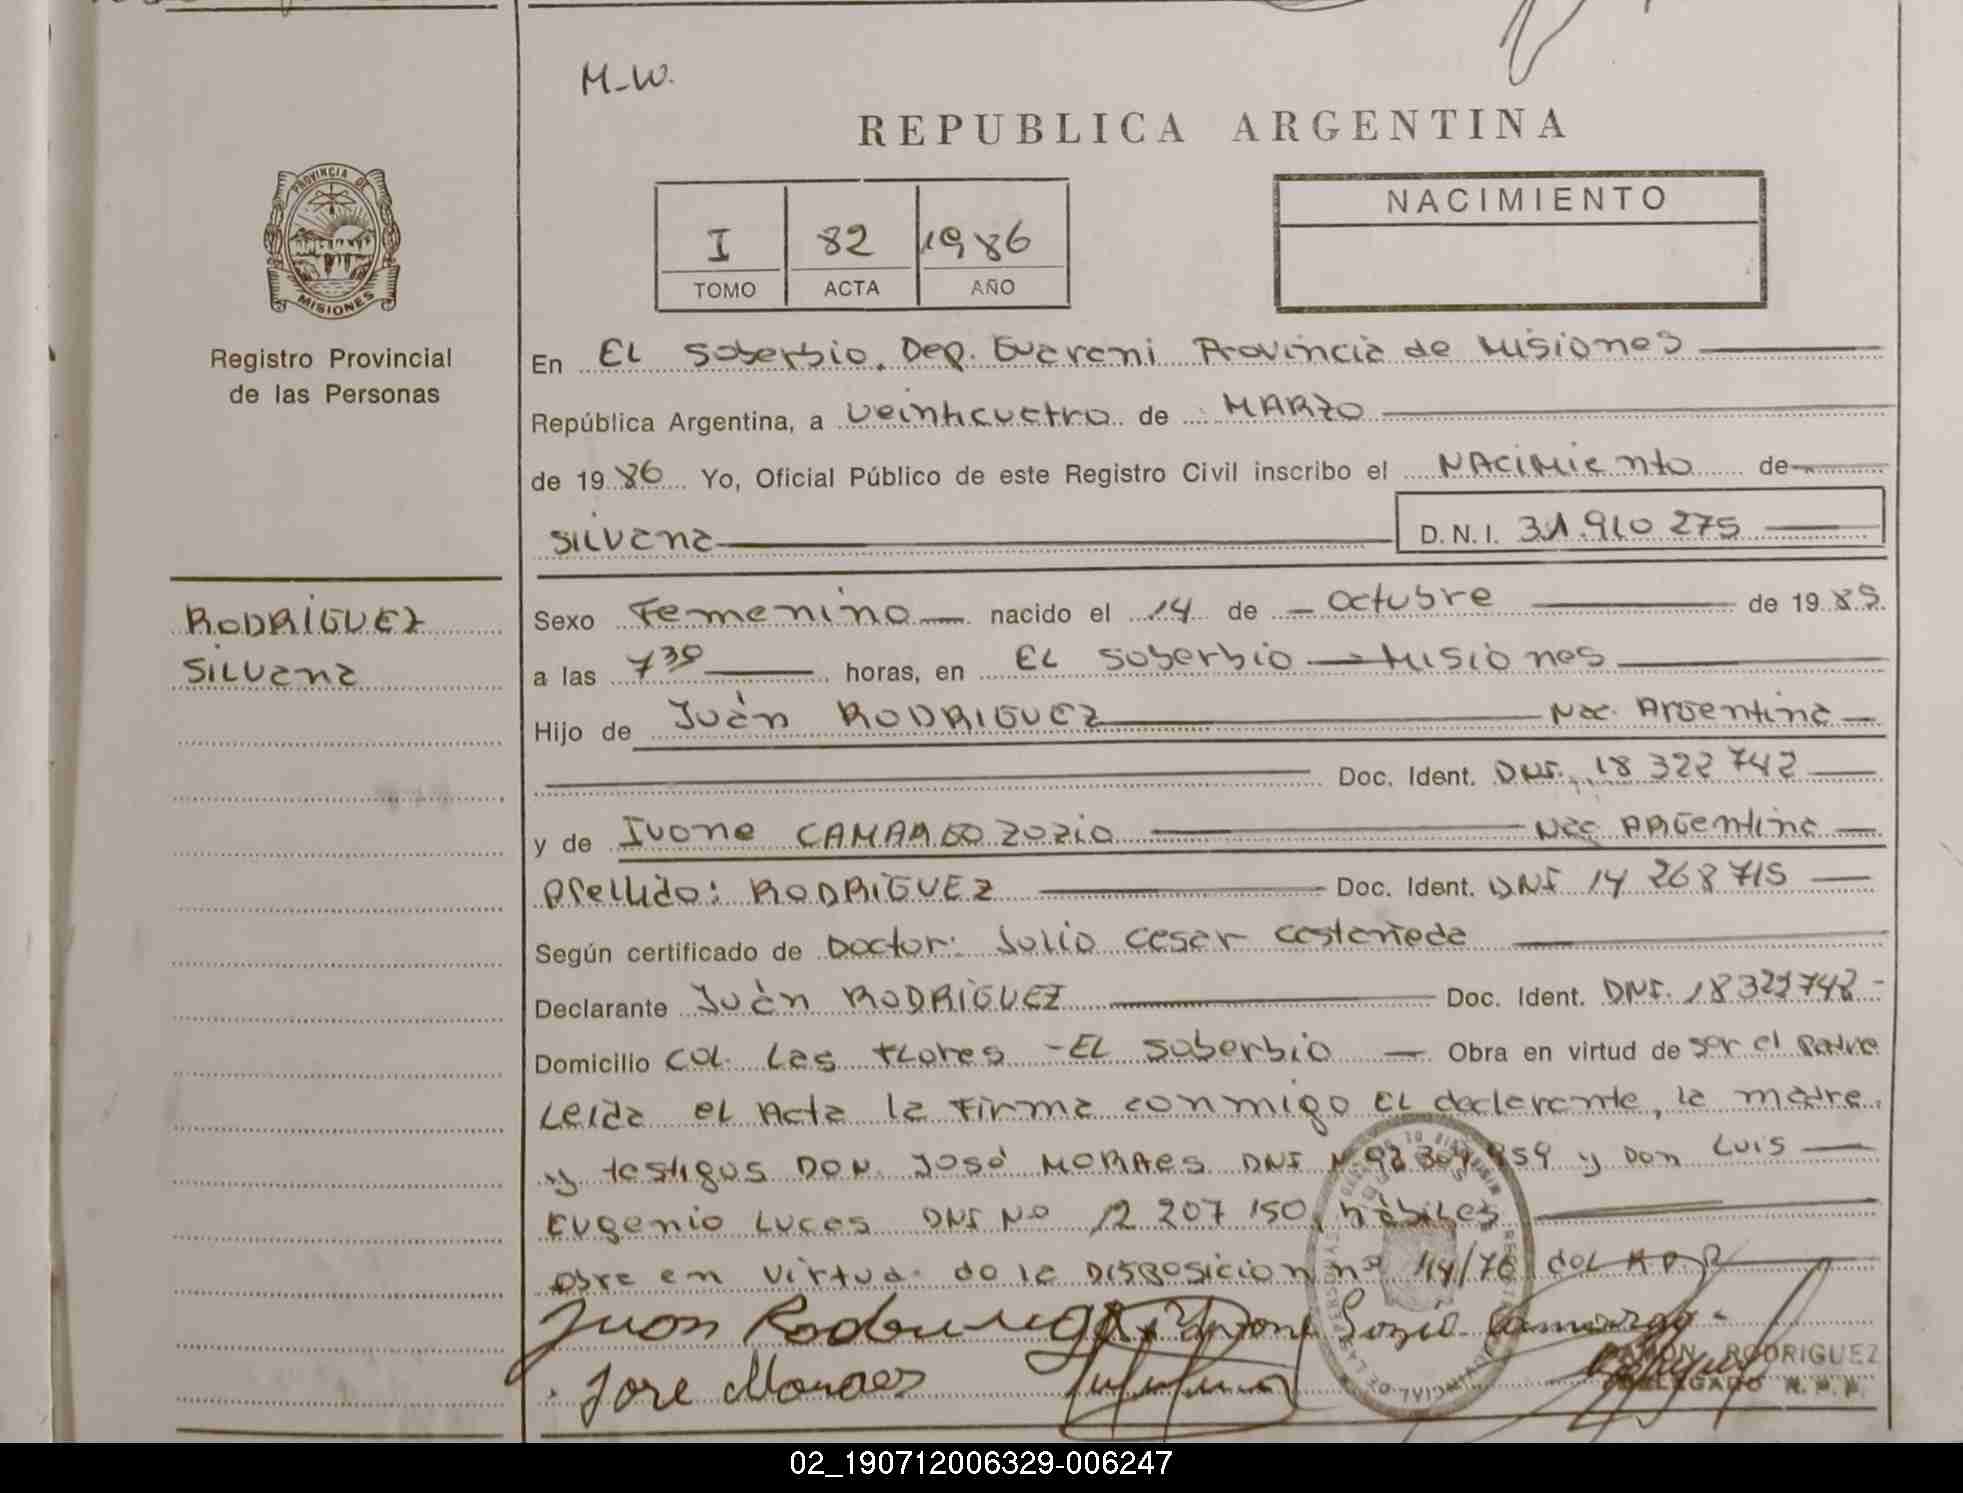 M-W.
REPUBLICA ARGENTINA
PROVINCIA DE
MISIONES
Registro Provincial
de las Personas
I 82 1986
TOMO ACTA AÑO
NACIMIENTO
En EL Soberbio. Dep. Guarani Provincia de Misiones
República Argentina, a veinticuatro de MARZO
de 1986 Yo, Oficial Público de este Registro Civil inscribo el NACIMIENTO de
SILVANA D.N.I. 31.910 275
RODRÍGUEZ
SILVANA
Sexo Femenino nacido el 14 de Octubre de 1985.
a las 7 30 horas, en EL Soberbio - Misiones
Hijo de Juàn RODRIGUEZ Nac. Argentina
Doc. Ident. DNI. 18 322 742
y de Ivone CAMARGO ZOZIO Nac ARGentina
Apellido: RODRÍGUEZ Doc. Ident. DNI 14 268 715
Según certificado de Doctor: Julio Cesar Castañeda
Declarante Juàn RODRÍGUEZ Doc. Ident. DNI. 18322742-
Domicilio COL. Las FLores - EL Soberbio Obra en virtud de ser el Padre
Leida el Acta la Firma conmigo EL declarante, la madre.
y testigos DON José MORAes DNI N 92 304 959 y Don Luis
EUgenio Luces DNI Nº 12 207 150, hàbiles
obra en virtud de la DISPOSICION nº 114/76 del R P P
Juan Rodriguez Ivone Sozio Camargo -
Jose Moraes
RAMON RODRIGUEZ
DELEGADO R.P.P.
02_190712006329-006247